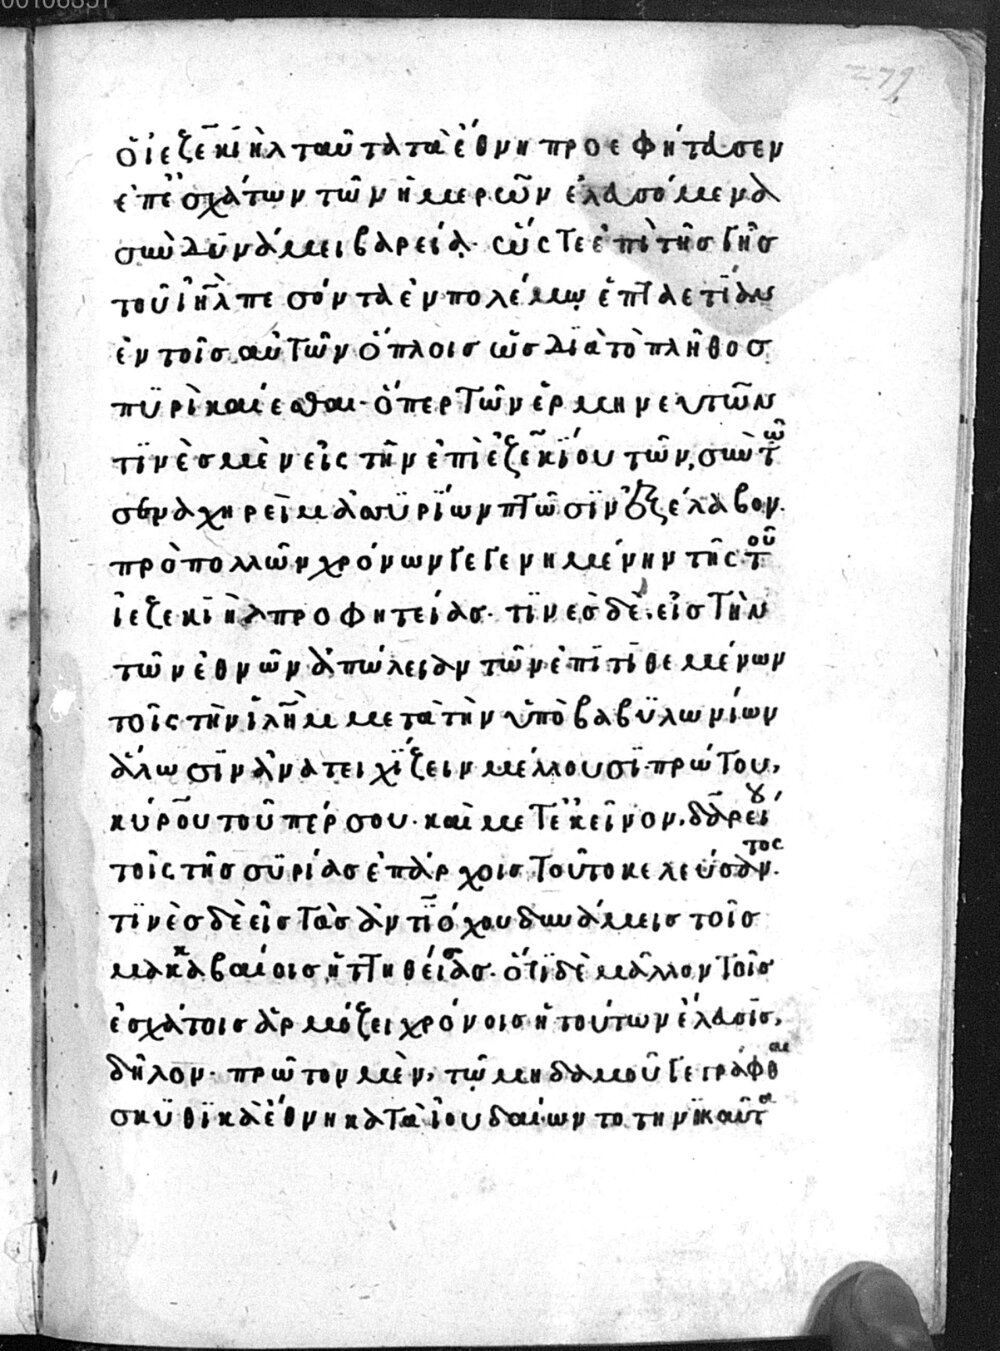 279
ὁ ἰεζεκιὴλ ταῦτα τὰ ἔθνη προεφήτασεν
ἐπ' ἐσχάτων τῶν ἡμερῶν ἐλασόμενα
σὺν δυνάμει βαρείᾳ· ὥς τε ἐπὶ τῆσ γῆσ
τοῦ ἰηλ πεσόντα ἐν πολέμῳ ἔπτα ετίαν
ἐν τοῖσ αὐτῶν ὅπλοισ ὡσ διὰ τὸ πλῆθοσ
πυρὶ καίεσθαι· ὅπερ τῶν ἑρμηνευτῶν
τινὲσ μὲν εἰς τὴν ἐπὶ ἐζεκίου τῶν, σὺν τῶ
σεναχηρεὶμ ἀσυρίων πτῶσιν ἐξέλαβον.
πρὸ πολλῶν χρόνων γεγενημένην τῆς τοῦ
ἰεζεκιὴλ προφητείασ· τινὲσ δὲ, εἰσ τὴν
τῶν ἐθνῶν ἀπώλειαν τῶν ἐπιτιθεμένων
τοῖς τὴν ἰλημ μετὰ τὴν ὑπὸ βαβυλωνίων
ἅλωσιν ἀνατειχίζειν μέλλουσι· πρώτου,
κύρου τοῦ πέρσου· καὶ μετ' ἐκεῖνον, δαρείου
τοῖς τῆσ συρίασ ἐπάρχοισ τοῦτο κελεύσαντος.
τινὲσ δὲ εἰσ τὰσ ἀντιόχου δυνάμεισ τοῖσ
μακκαβαίοισ ἡττηθείσασ· ὅτι δὲ μᾶλλον τοῖσ
ἐσχάτοισ ἁρμόζει χρόνοισ ἡ τούτων ἔλασισ,
δῆλον· πρῶτον μὲν, τῶ μηδαμοῦ γεγράφθαι
σκυθικὰ ἔθνη κατὰ ἰουδαίων τοτηνικαῦτα